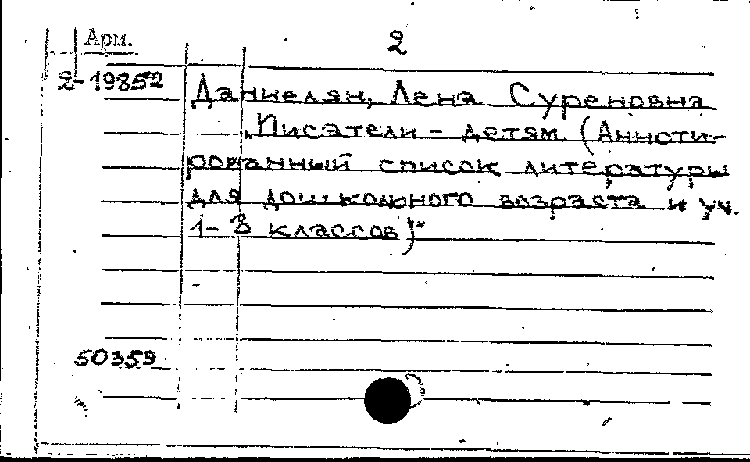 Арм.
2
2-19852
Даниелян, Лена Суреновна
„Писатели - детям (Анноти-
рованный список литературы
для дошкольного возраста и уч.
1-3 классов)"
50359